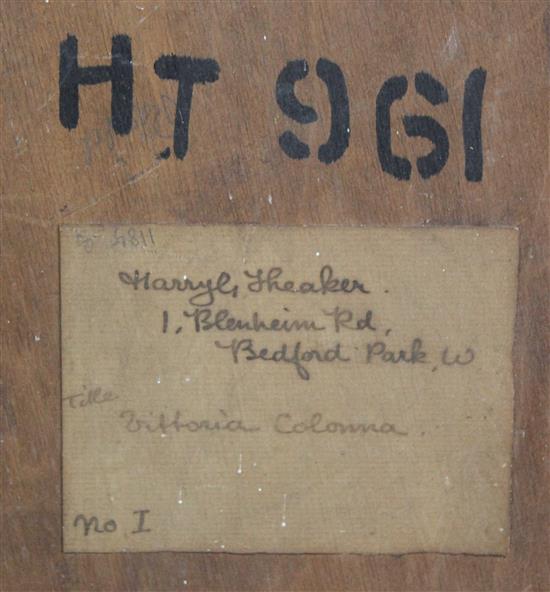 HT 961
Harry G. Theaker.
1, Blenheim Rd,
Bedford Park, W
Title
Vittoria Colonna.
No I